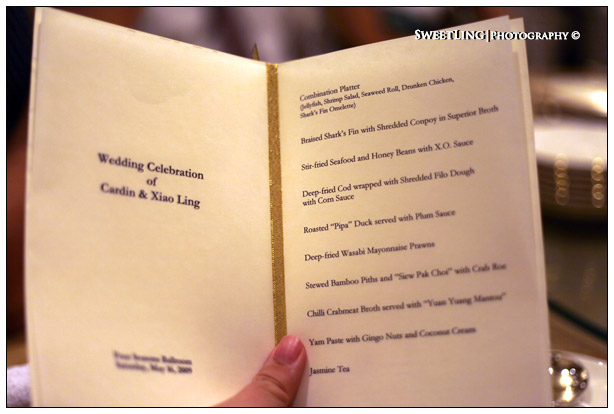 SWEETLING|PHOTOGRAPHY ©
Wedding Celebration
of
Cardin & Xiao Ling
Four Seasons Ballroom
Saturday, May 16, 2009
Combination Platter
(Jellyfish, Shrimp Salad, Seaweed Roll, Drunken Chicken,
Shark's Fin Omelette)
Braised Shark's Fin with Shredded Conpoy in Superior Broth
Stir-fried Seafood and Honey Beans with X.O. Sauce
Deep-fried Cod wrapped with Shredded Filo Dough
with Corn Sauce
Roasted "Pipa" Duck served with Plum Sauce
Deep-fried Wasabi Mayonnaise Prawns
Stewed Bamboo Piths and "Siew Pak Choi" with Crab Roe
Chilli Crabmeat Broth served with "Yuan Yuang Mantou"
Yam Paste with Gingo Nuts and Coconut Cream
Jasmine Tea